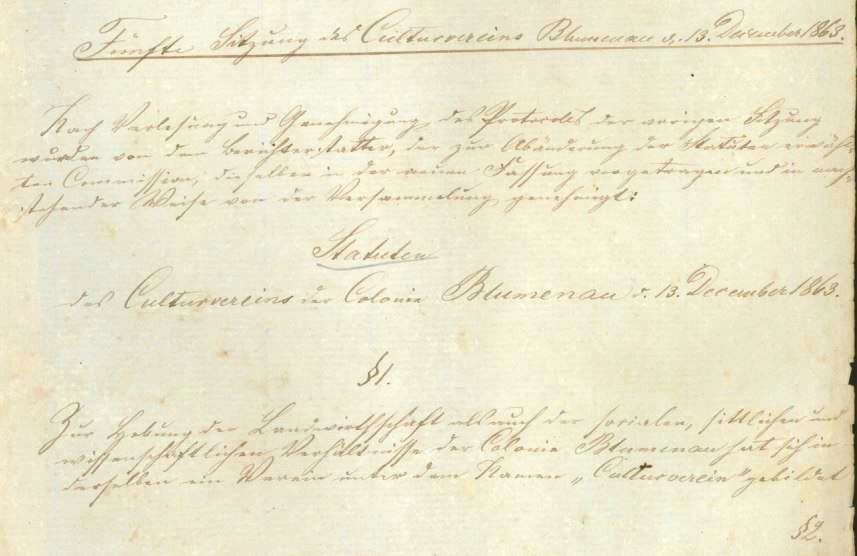 Fünfte Sitzung des Culturvereins Blumenau d. 13. December 1863.
Nach Verlesung und Genehmigung des Protocolls der vorigen Sitzung
wurden von dem Berichterstatter, der zur Abänderung der Statuten erwähl-
ten Commission, dieselben in der neuen Fassung vorgetragen und in nach-
stehender Weise von der Versammlung genehmigt:
Statuten
des Culturvereins der Colonie Blumenau d. 13. December 1863.
§1.
Zur Hebung der Landwirthschaft als auch der socialen, sittlichen und
wissenschaftlichen Verhältnisse der Colonie Blumenau hat sich in
derselben ein Verein unter dem Namen „Culturverein" gebildet
§2.